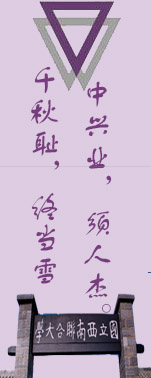 千秋耻，终当雪
中兴业，须人杰。
國立西南聯合大學